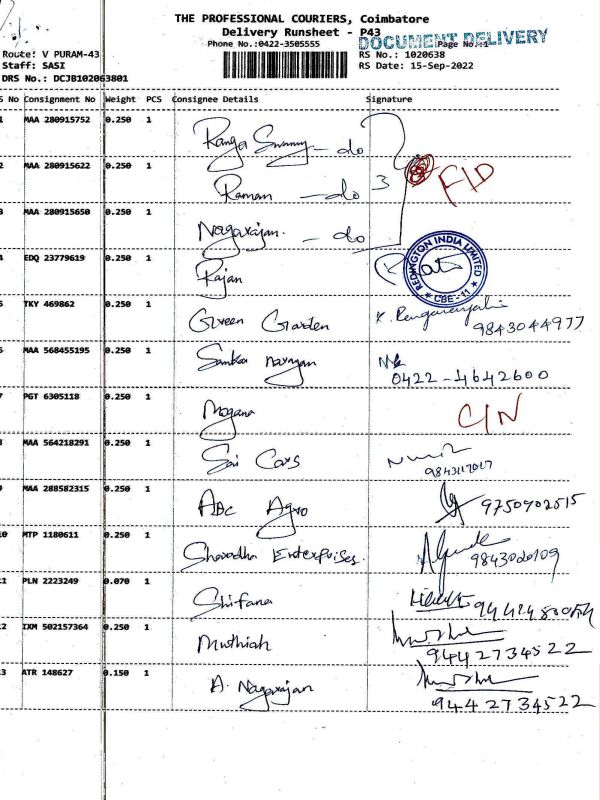 THE PROFESSIONAL COURIERS, Coimbatore
Delivery Runsheet - P43
Phone No.:0422-3505555
DOCUMENT DELIVERY
Page No.:1
Route: V PURAM-43
RS No.: 1020638
Staff: SASI
RS Date: 15-Sep-2022
DRS No.: DCJB102063801
S No Consignment No Weight PCS Consignee Details Signature
1 MAA 280915752 0.250 1 Ranga Swamy - do
2 MAA 280915622 0.250 1 Raman - do 3 FID
3 MAA 280915650 0.250 1 Nagarajan. - do
4 EDQ 23779619 0.250 1 Rajan
REDINGTON INDIA LIMITED
* CBE - 11 *
5 TKY 469862 0.250 1 Green Garden
9843044977
6 MAA 568455195 0.250 1 Sankar narayan
0422-4642600
7 PGT 6305118 0.250 1 Mogana C/N
8 MAA 564218291 0.250 1 Sai Cars
9 MAA 288582315 0.250 1 ABC Agro 9750902515
10 MTP 1180611 0.250 1 Sharadha Enterprises. 9843020109
11 PLN 2223249 0.070 1 Shifana
12 IXM 502157364 0.250 1 Muthiah
9442734522
13 ATR 148627 0.150 1 A. Nagarajan
9442734522